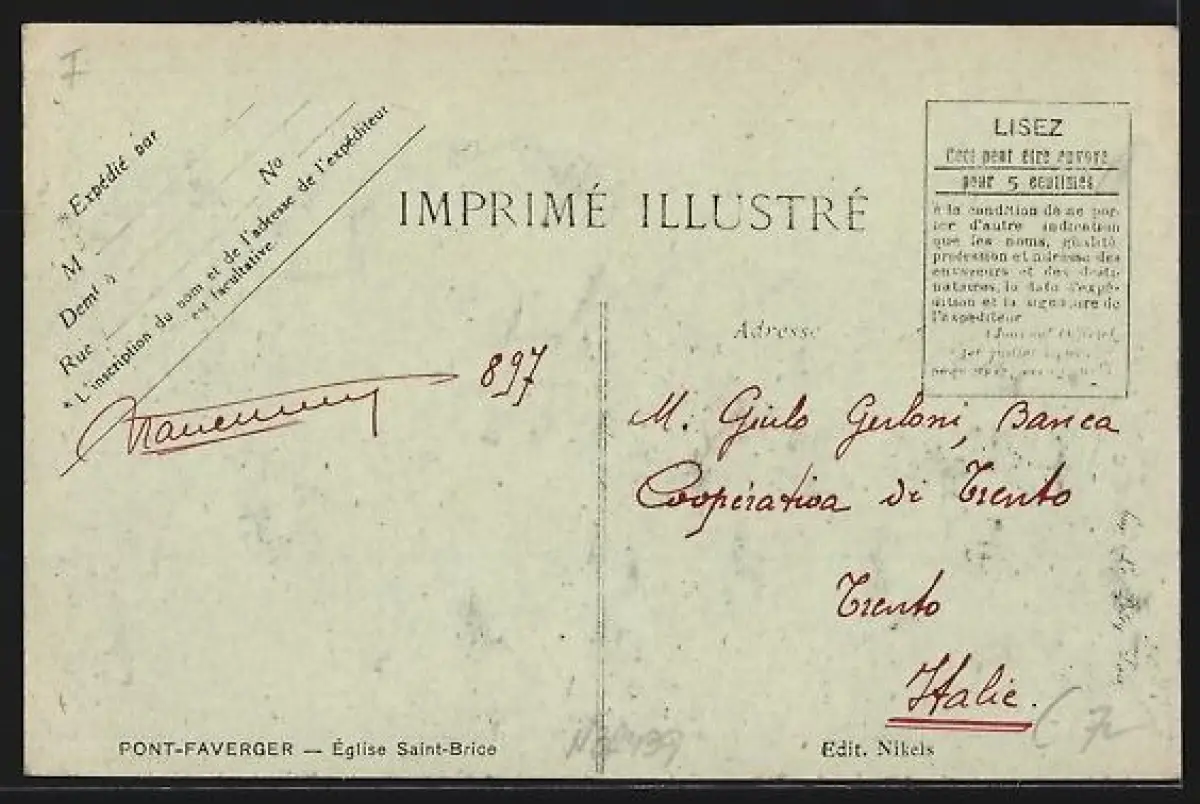 I
* Expédié par
M
No
Demt à
Rue
* L'inscription du nom et de l'adresse de l'expéditeur
est facultative
IMPRIMÉ ILLUSTRÉ
LISEZ
Ceci peut être envoyé
pour 5 centimes
à la condition de ne por-
ter d'autre indication
que les noms, qualité,
profession et adresse des
envoyeurs et des desti-
nataires, la date d'expé-
dition et la signature de
l'expéditeur
Adresse
897
M. Giulo Gerloni, Banca
Coopérativa di Trento
Trento
Italie.
PONT-FAVERGER — Église Saint-Brice
Edit. Nikels